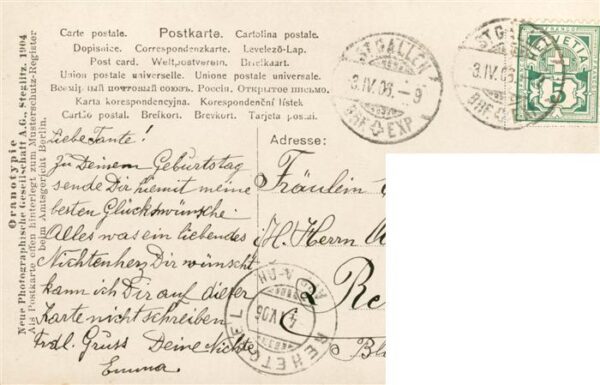 Carte postale. Postkarte. Cartolina postale.
Dopisnice. Correspondenzkarte. Levelező-Lap.
Post card. Weltpostverein. Briefkaart.
Union postale universelle. Unione postale universale.
Всемірный почтовый союзъ. Россія. Открытое письмо.
Karta korespondencyjna. Korespondenční lístek.
Cartão postal. Brefkort. Brevkort. Tarjeta postal.
ST. GALLEN
3.IV.06.-9
BRF. EXP.
ST. GALLEN
3.IV.06.
BRF.
HELVETIA
5
Oranotypie
Neue Photographische Gesellschaft A.G., Steglitz. 1904
Als Postkarte offen hinterlegt zum Musterschutz-Register
beim Amtsgericht Berlin.
Liebe Tante!
Zu Deinem Geburtstag
sende Dir hiemit meine
besten Glückwünsche.
Alles was ein liebendes
Nichtenherz Dir wünscht
kann ich Dir auf dieser
Karte nicht schreiben
Frdl. Gruss Deine Nichte
Emma.
Adresse:
Fräulein
H. Herrn
Re
REHETOBEL
4 IV 06